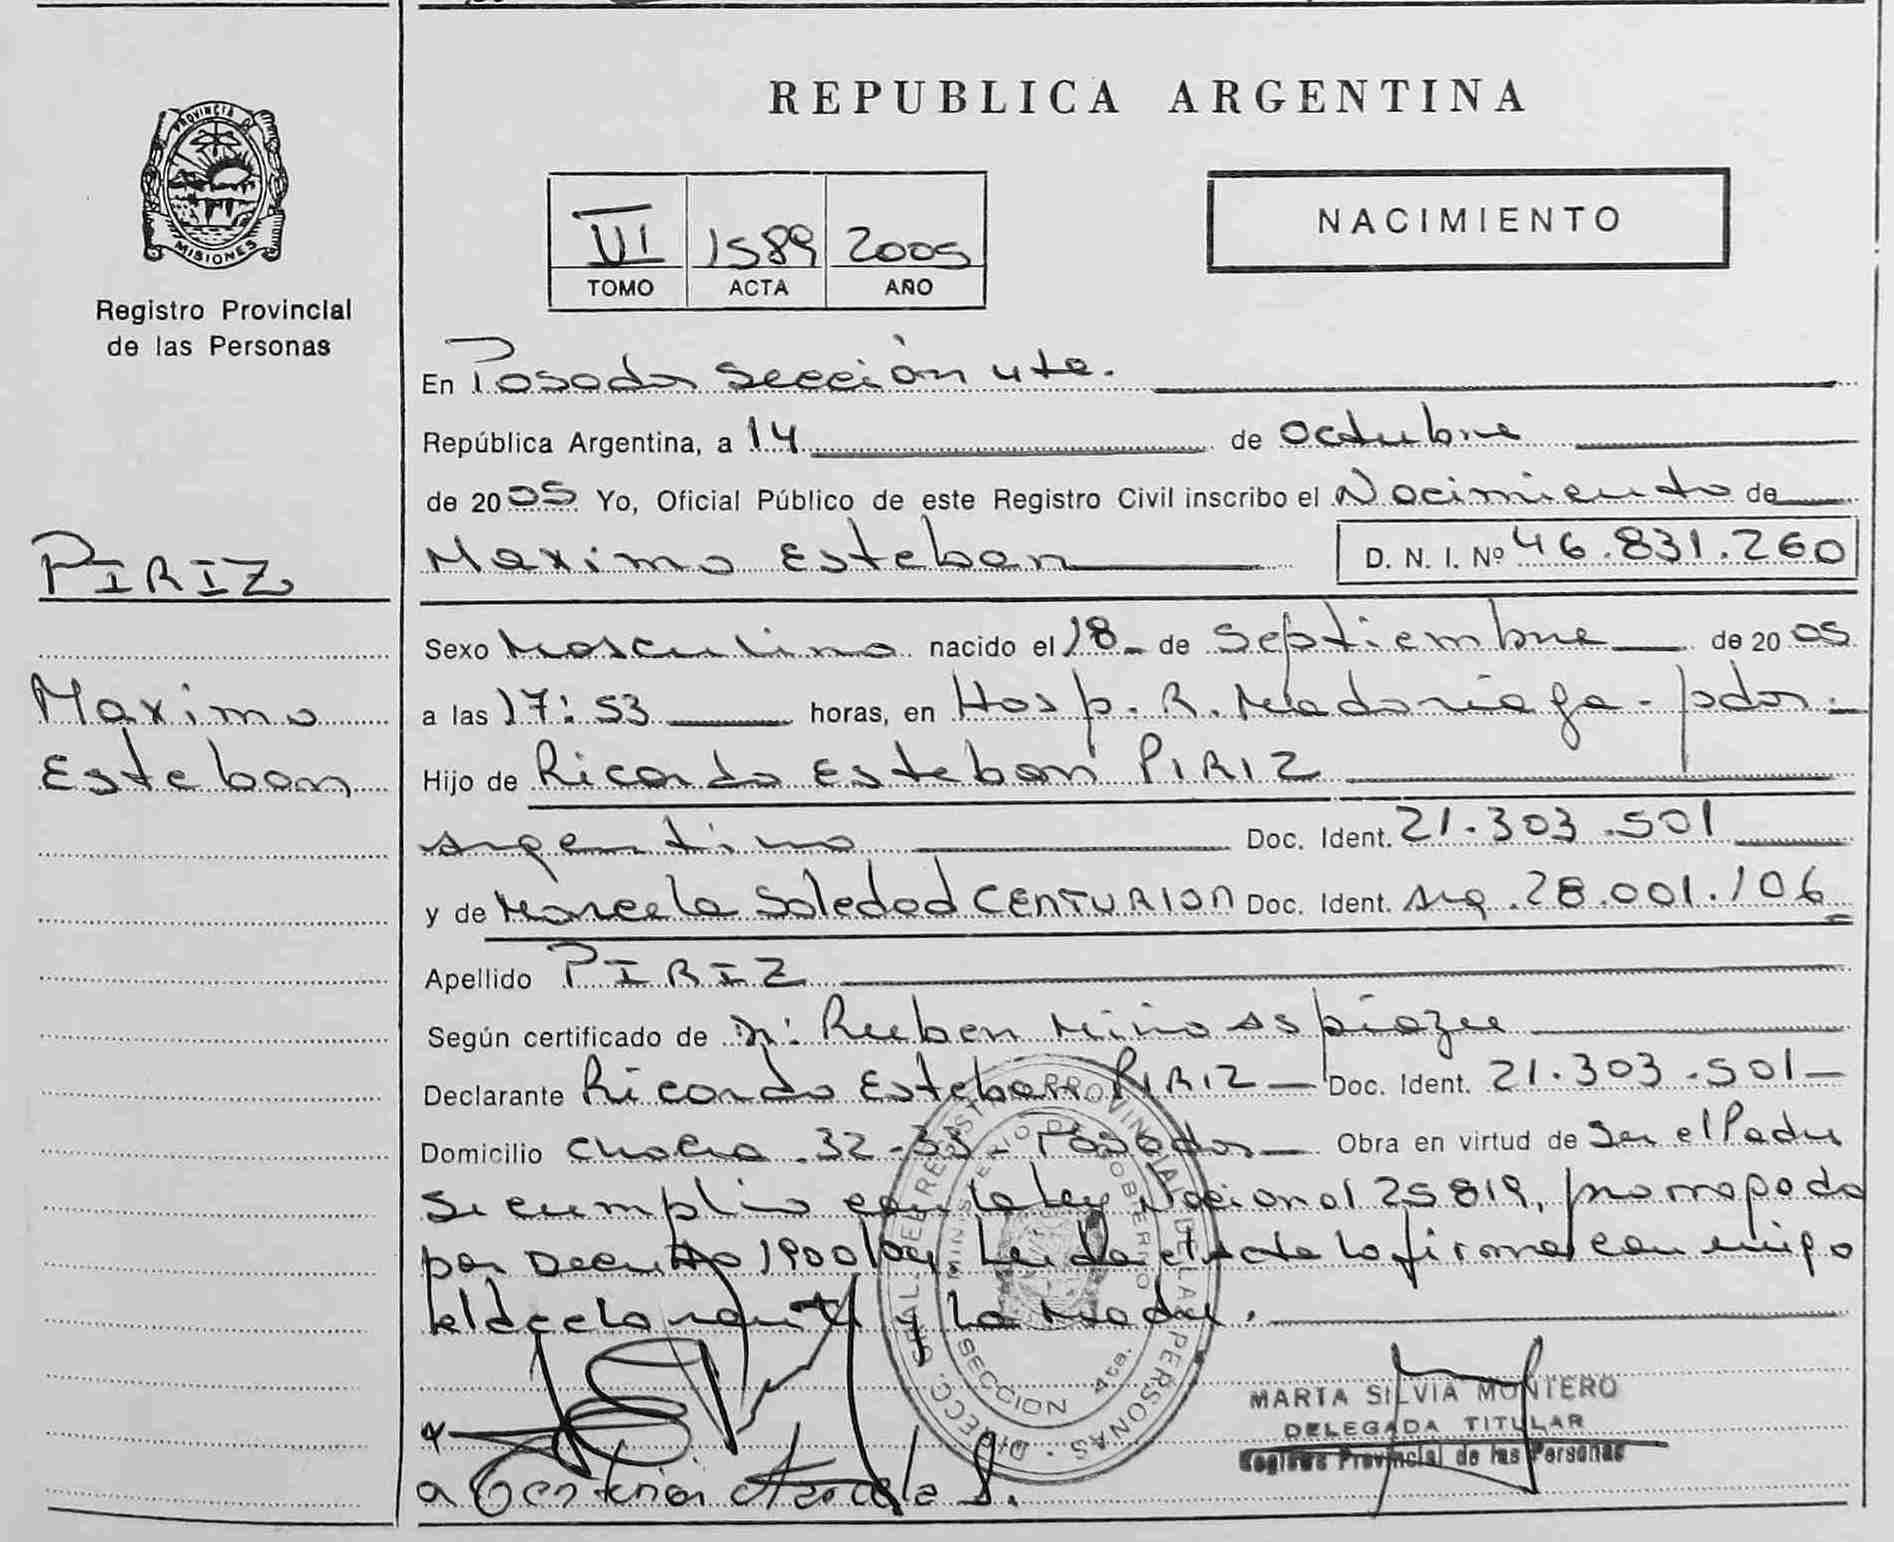 PROVINCIA DE
MISIONES
Registro Provincial
de las Personas
PIRIZ
Maximo
Esteban
REPUBLICA ARGENTINA
VI 1589 2005
TOMO ACTA AÑO
NACIMIENTO
En Posadas Sección 4ta.
República Argentina, a 14 de octubre
de 2005 Yo, Oficial Público de este Registro Civil inscribo el Nacimiento de
Maximo Esteban D. N. I. Nº 46.831.260
Sexo Masculino nacido el 18 de Septiembre de 2005
a las 17:53 horas, en Hosp. R. Madariaga - pdas.
Hijo de Ricardo Esteban PIRIZ
argentino Doc. Ident. 21.303.501
y de Marcela Soledad CENTURION Doc. Ident. arg. 28.001.106
Apellido PIRIZ
Según certificado de Dr: Ruben Miño Aspiazu
Declarante Ricardo Esteban PIRIZ Doc. Ident. 21.303.501
Domicilio Chacra 32-33 - Posadas Obra en virtud de Ser el Padre
Se cumplio con la ley Nacional 25819, prorrogada
por Decreto 1900/04. Leida el acta la firman conmigo
el declarante y la Madre.
DIRECC. GRAL. DEL REGISTRO PROVINCIAL DE LAS PERSONAS
MINISTERIO DE GOBIERNO
SECCION 4ta.
MARTA SILVIA MONTERO
DELEGADA TITULAR
Registro Provincial de las Personas
Centurion Marcela S.